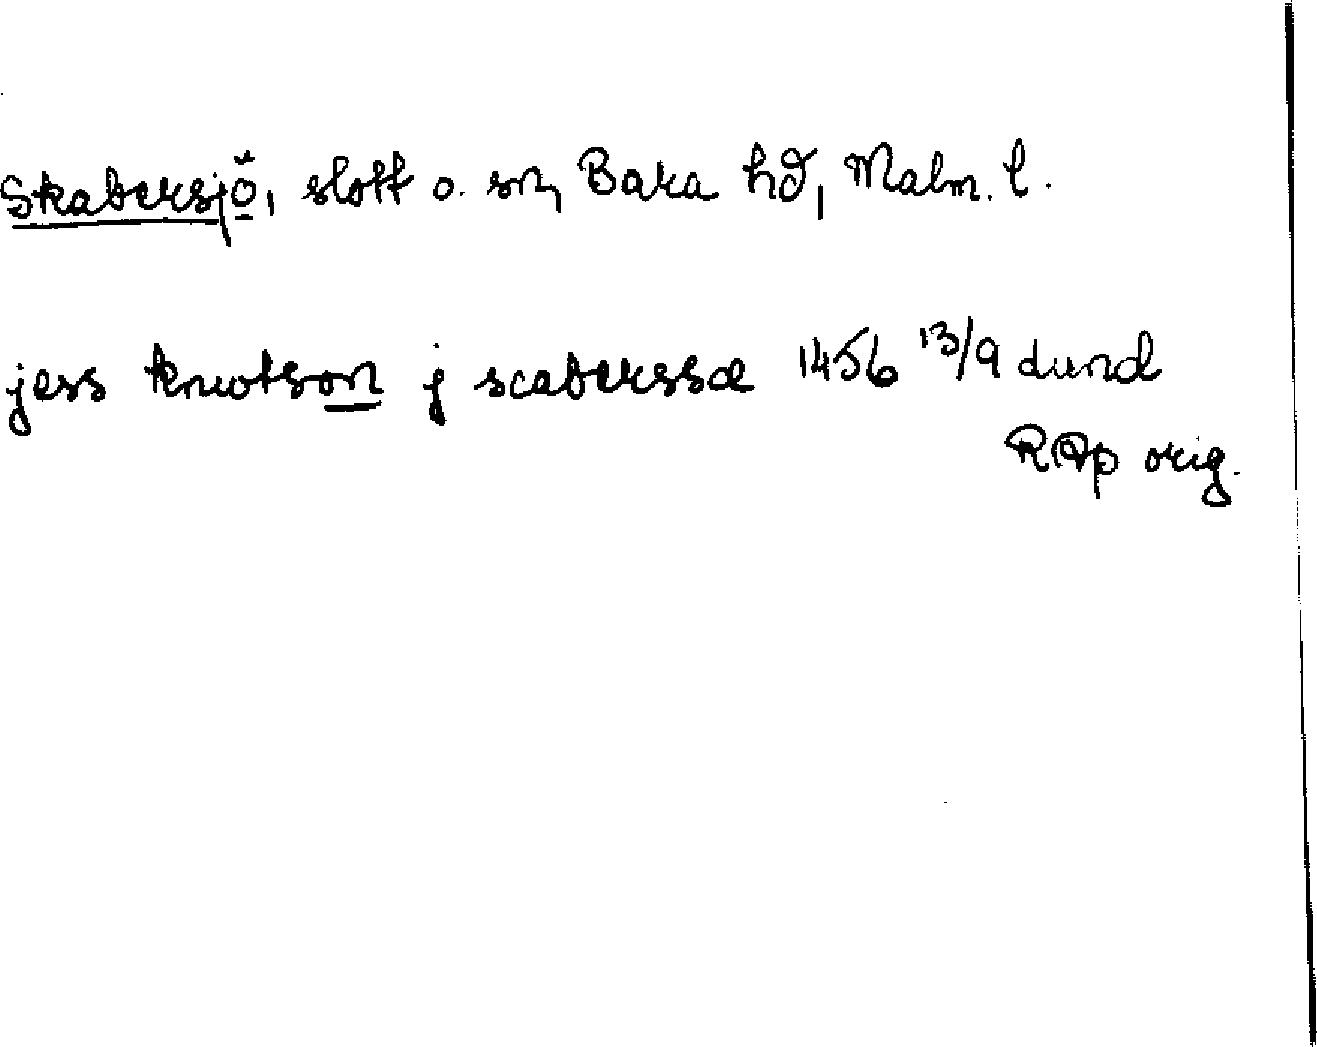 Skabersjö, slott o. sn, Bara hd, Malm. l.
jess knwtson j scaberssæ 1456 13/9 Lund
RAp orig.